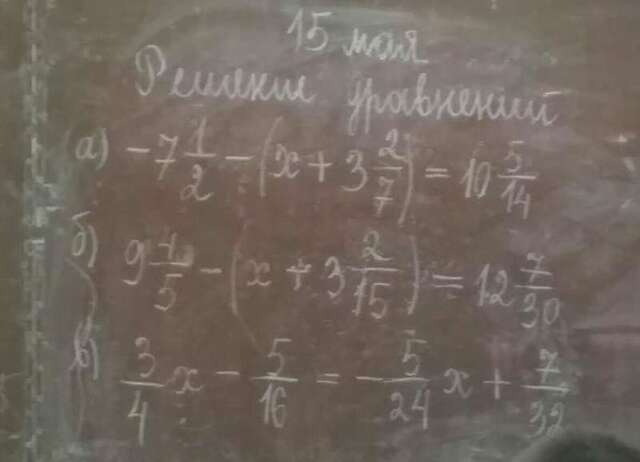 15 мая
Решение уравнений
а) -7 1/2 - (x + 3 2/7) = 10 5/14
б) 9 4/5 - (x + 3 2/15) = 12 7/30
в) 3/4 x - 5/16 = - 5/24 x + 7/32